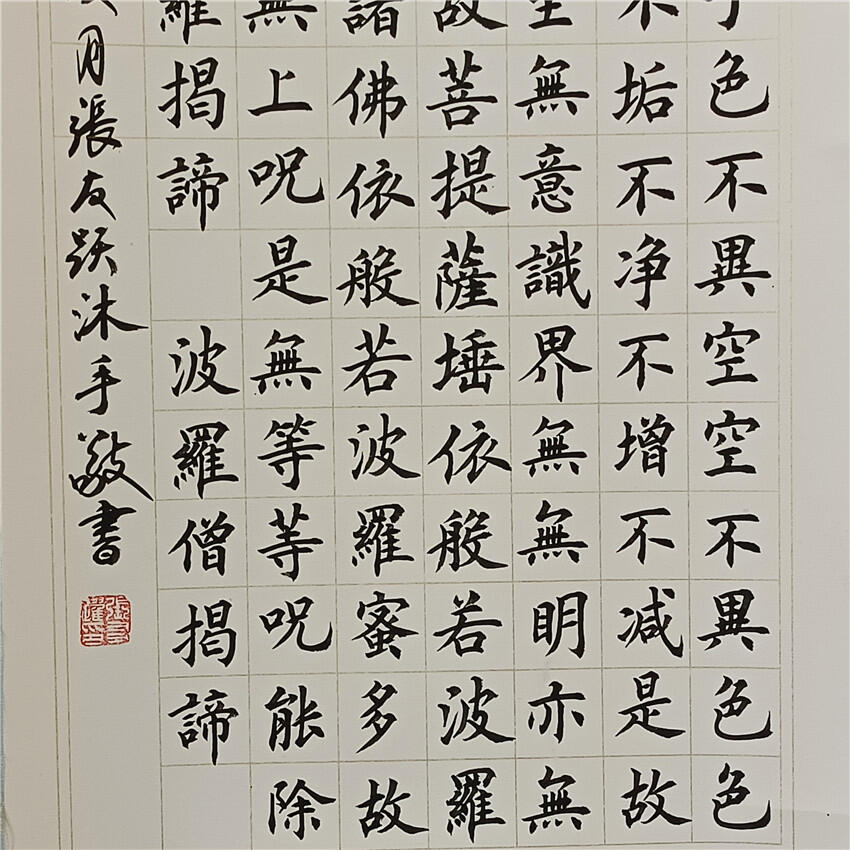 色不異空空不異色色
不垢不净不增不减是故
至無意識界無無明亦無
故菩提薩埵依般若波羅
諸佛依般若波羅蜜多故
無上呪是無等等呪能除
羅揭諦 波羅僧揭諦
月張友跃沐手敬書